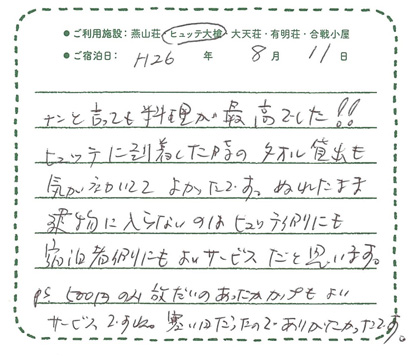 ●ご利用施設：燕山荘・ヒュッテ大槍・大天荘・有明荘・合戦小屋
●ご宿泊日： H26 年 8 月 11 日
ナンと言っても料理が最高でした!!
ヒュッテに到着した時のタオル貸出も
気がきいてて よかったです。ぬれたまま
建物に入らないのはヒュッテ側にも
宿泊者側にもよいサービスだと思います。
PS 500円のみ放だいのあったかカップもよい
サービスですね。寒い日だったのでありがたかったです。